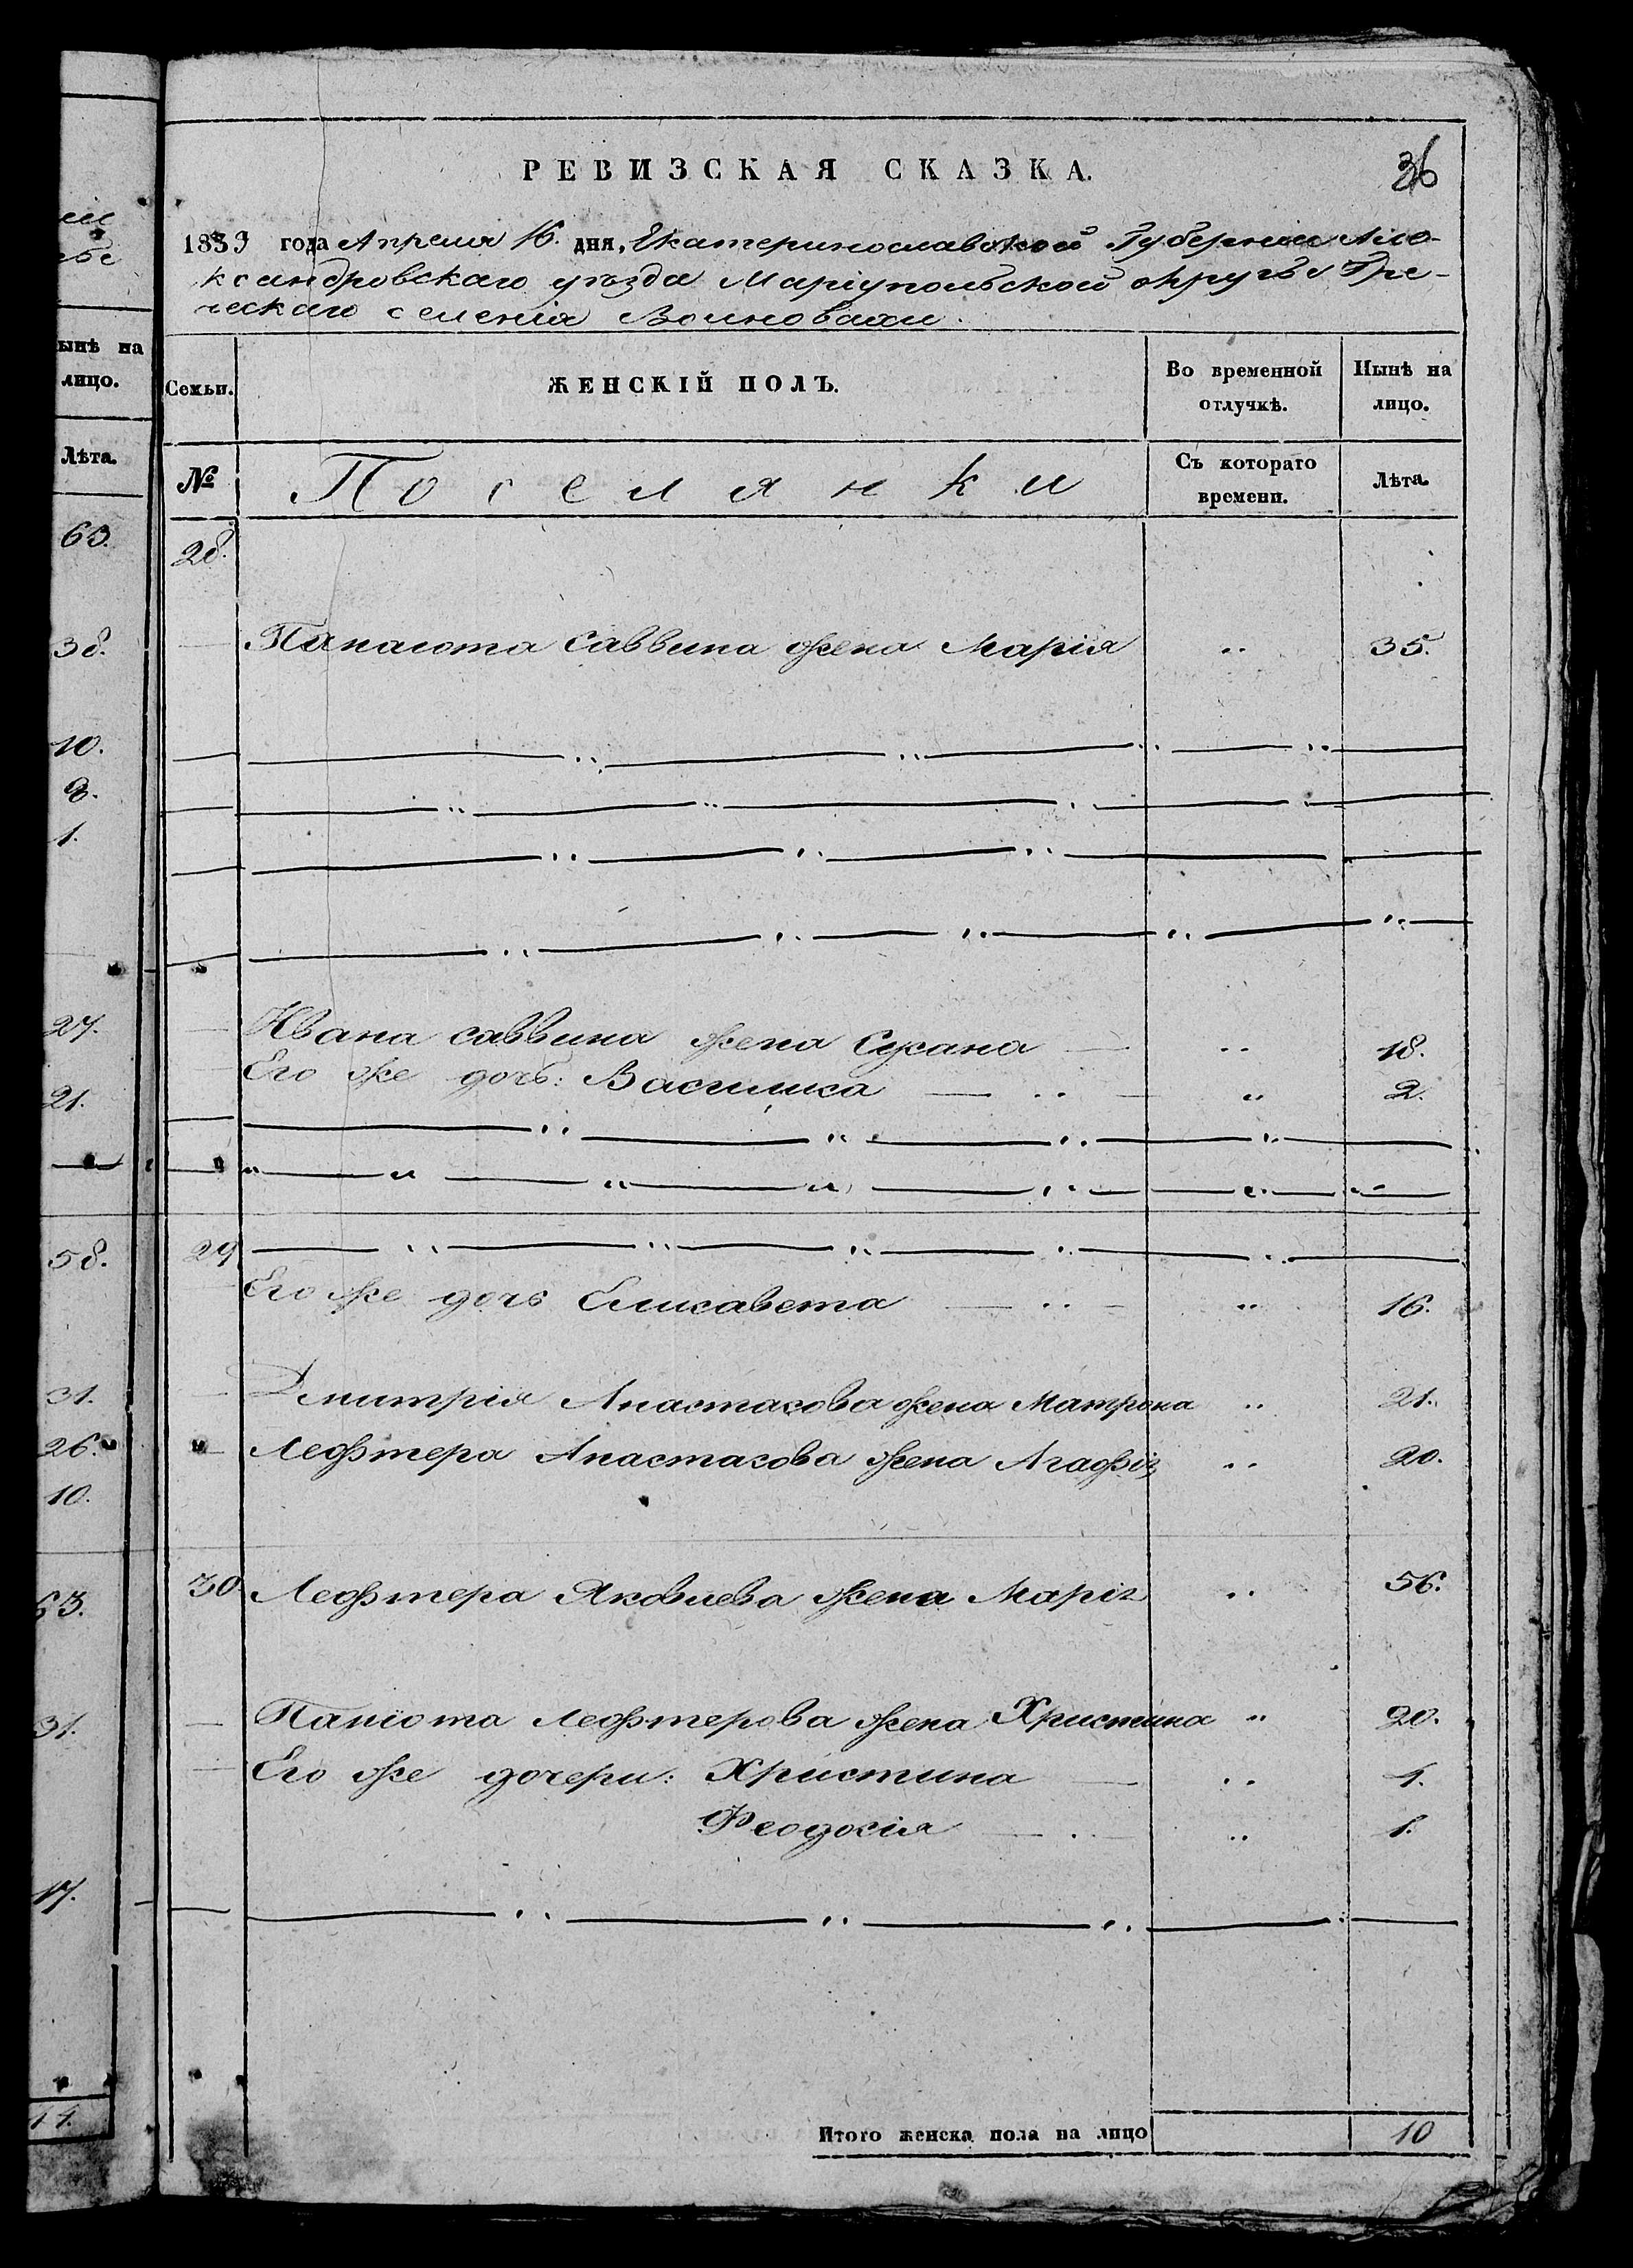 мъ
ебс
ынѣ на
лицо.
Лѣта.
63.
38.
10.
8.
1.
27.
21.
58.
31.
26.
10.
63.
31.
17.
14.
РЕВИЗСКАЯ СКАЗКА.
36
1839 года Апреля 16. дня, Екатеринославской Губерніи Але-
ксандровскаго уѣзда Маріупольской округи Гре-
ческаго селенія Волновахи.
Семьи.
ЖЕНСКІЙ ПОЛЪ.
Во временной отлучкѣ.
Нынѣ на лицо.
№
Поселянки
Съ котораго времени.
Лѣта.
28.
Панаіота Саввина жена Марія „ 35.
Ивана саввина жена Сусана „ 18.
Его же дочь: Василика „ 2.
29
Его же дочь Елисавета „ 16.
Дмитрія Анастасова жена Матрона „ 21.
Лефтера Анастасова жена Агафія „ 20.
30 Лефтера Яковлева жена Марія „ 56.
Паніота Лефтерова жена Христина „ 20.
Его же дочери: Христина „ 4.
Феодосія „ 1.
Итого женска пола на лицо 10